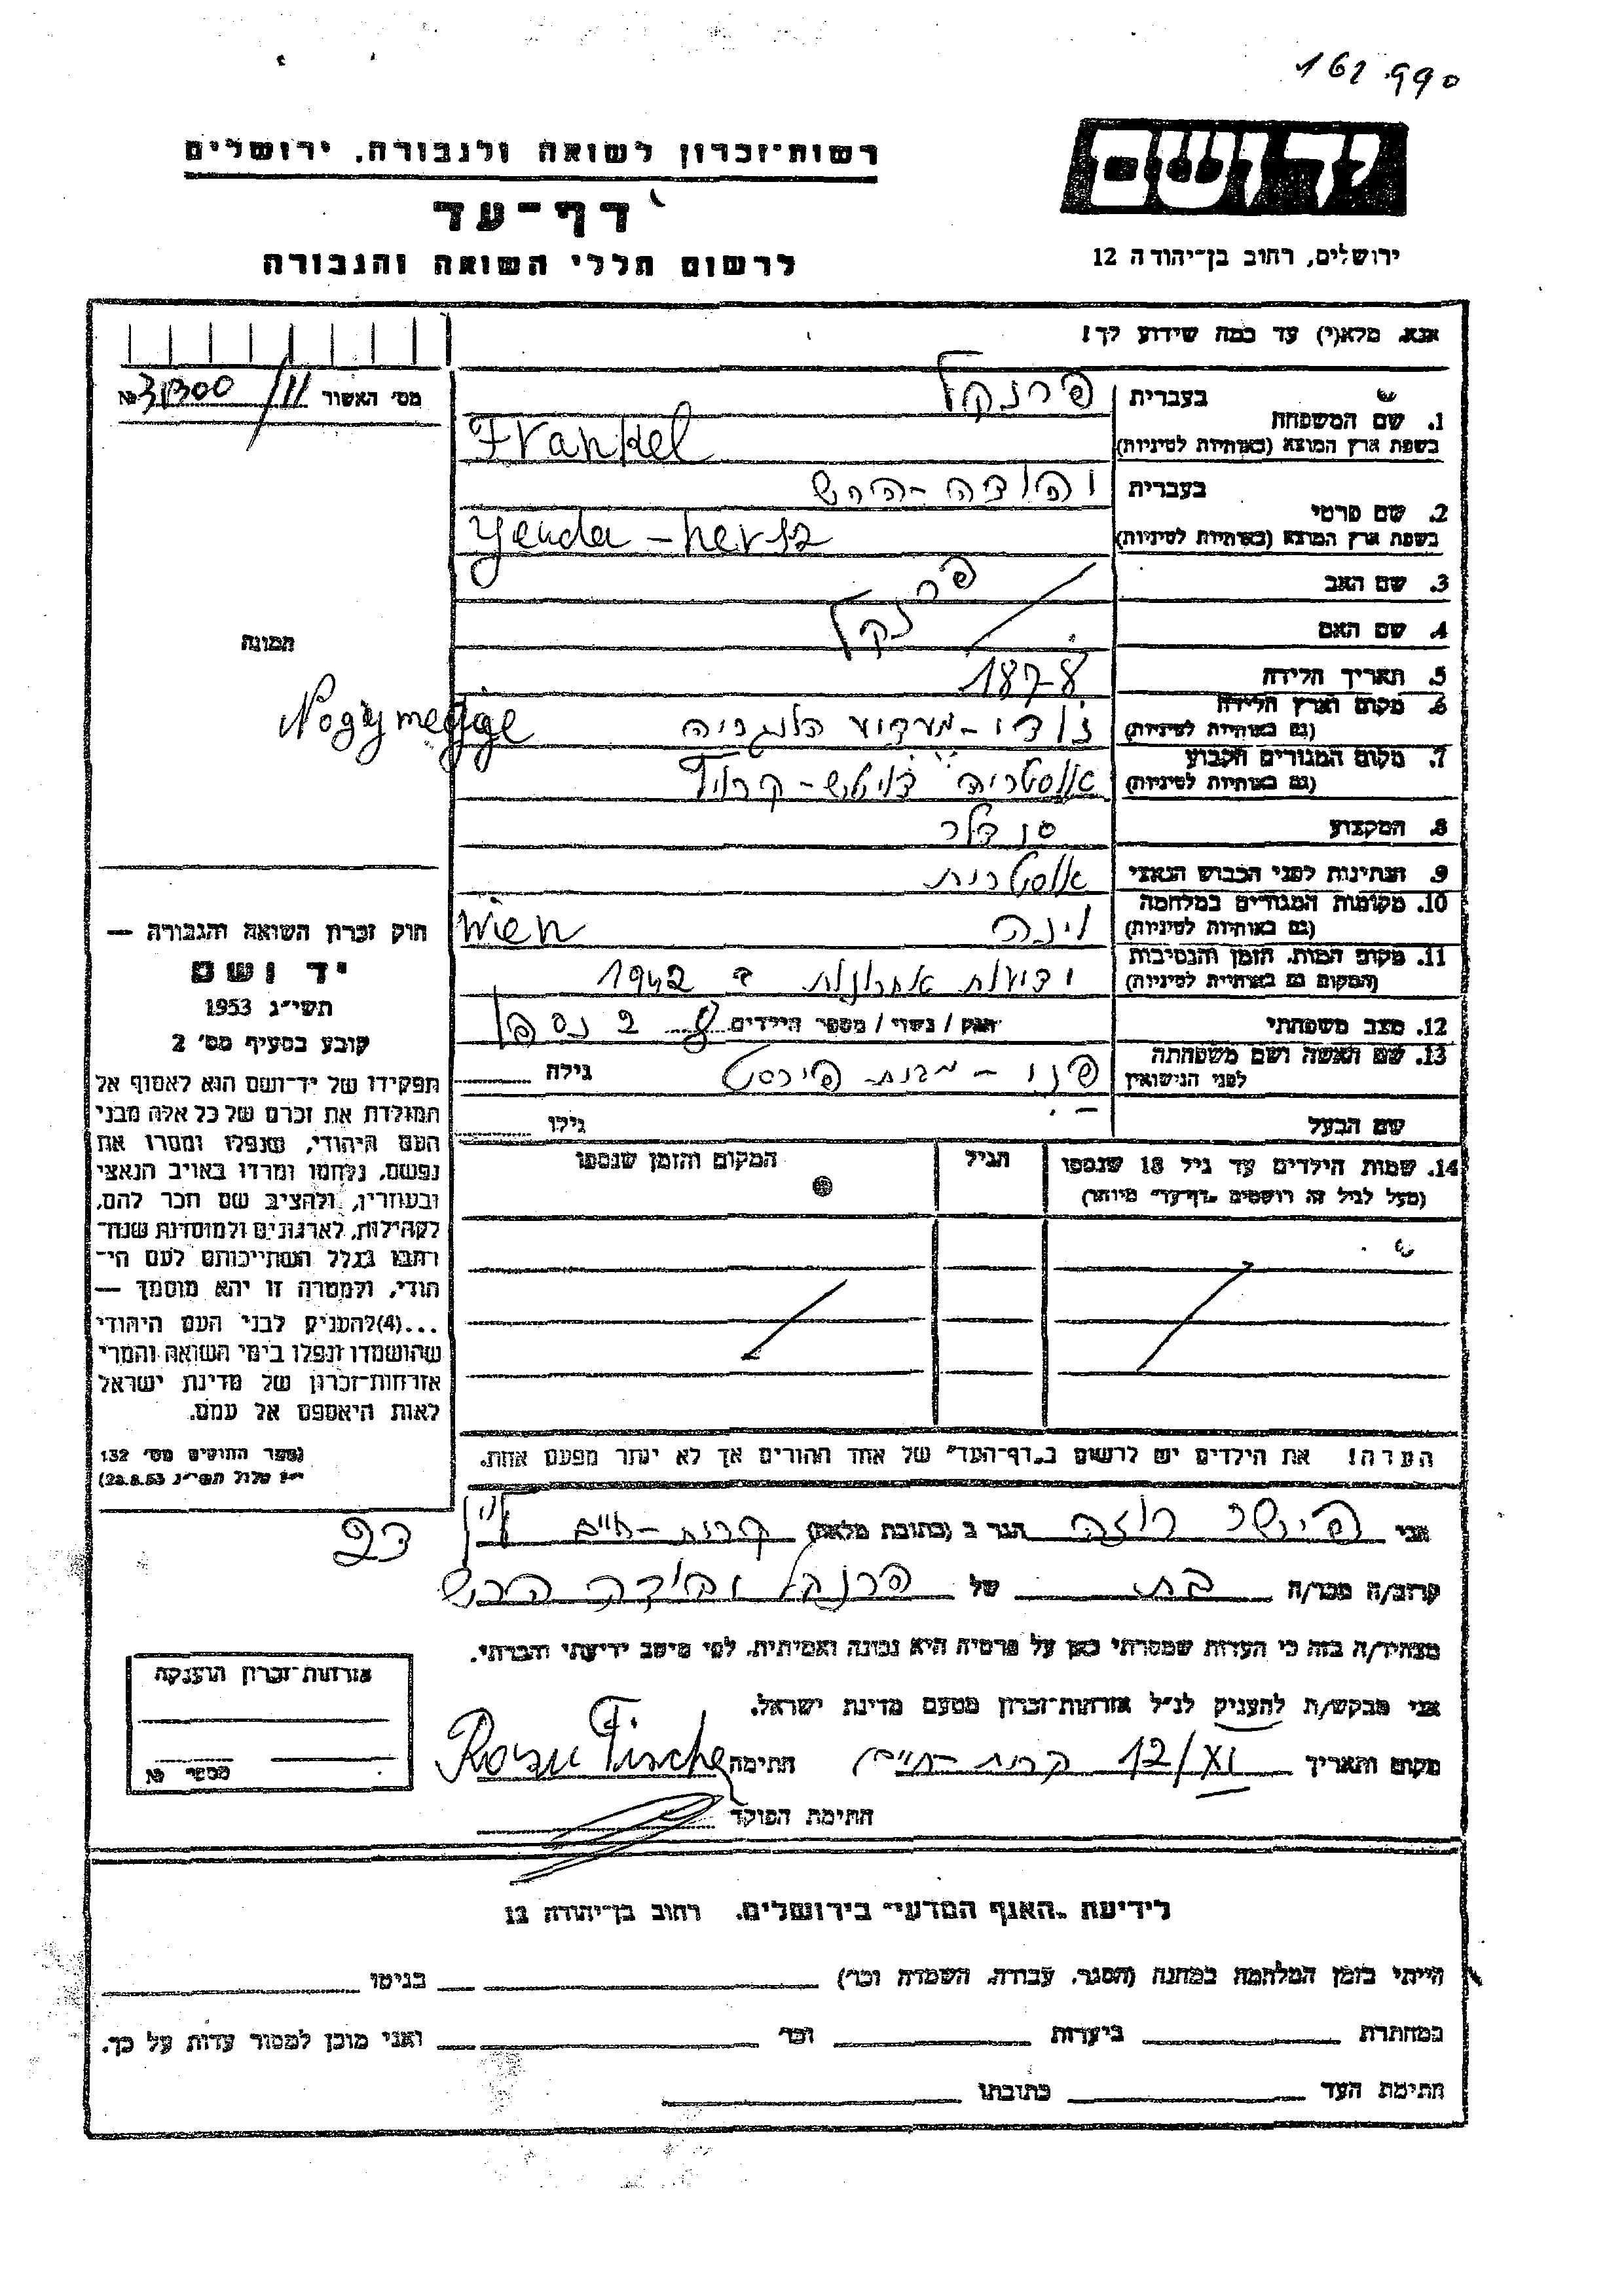 162.990
רשות־זכרון לשואה ולגבורה. ירושלים
דף־עד
לרשום חללי השואה והגבורה
יד ושם
ירושלים, רחוב בן־יהודה 12
אנא. מלא(י) עד כמה שידוע לך!
מס׳ האשור
1. שם המשפחה
בעברית פרנקל
בשפת ארץ המוצא (באותיות לטיניות) Frankel
2. שם פרטי
בעברית יהודה-הרש
בשפת ארץ המוצא (באותיות לטיניות) Yeuda-hersz
3. שם האב פרנקל
4. שם האם
5. תאריך הלידה 1878
6. מקום וארץ הלידה
(גם באותיות לטיניות) הונגריה Nogymegyge
7. מקום המגורים הקבוע
(גם באותיות לטיניות) אוסטריה דויטש-קרויץ
8. המקצוע סנדלר
9. הנתינות לפני הכבוש הנאצי אוסטרית
10. מקומות המגורים במלחמה
(גם באותיות לטיניות) וינה Wien
11. מקום המות. הזמן והנסיבות
(המקום גם באותיות לטיניות) ידיעות אחרונות ב 1942
12. מצב משפחתי רווק / נשוי / מספר הילדים 8 2 נספו
13. שם האשה ושם משפחתה
לפני הנישואין פני - מבית פירסט גילה
שם הבעל גילו
14. שמות הילדים עד גיל 18 שנספו
(מעל לגיל זה רושמים „דף־עד״ מיוחד)
הגיל
המקום והזמן שנספו
הערה! את הילדים יש לרשום ב„דף־העד״ של אחד ההורים אך לא יותר מפעם אחת.
תמונה
חוק זכרון השואה והגבורה —
יד ושם
תשי״ג 1953
קובע בסעיף מס׳ 2
תפקידו של יד־ושם הוא לאסוף אל
המולדת את זכרם של כל אלה מבני
העם היהודי, שנפלו ומסרו את
נפשם, נלחמו ומרדו באויב הנאצי
ובעוזריו, ולהציב שם וזכר להם,
לקהילות, לארגונים ולמוסדות שנח־
רבו בגלל השתייכותם לעם הי־
הודי, ולמטרה זו יהא מוסמך —
...(4)להעניק לבני העם היהודי
שהושמדו ונפלו בימי השואה והמרי
אזרחות־זכרון של מדינת ישראל
לאות היאספם אל עמם.
(ספר החוקים מס׳ 132
י״ז אלול תשי״ג 28.8.53)
אני פישר רוזה הגר ב (כתובת מלאה) קרית-חיים
קרוב/ה מכר/ה בת של פרנקל יהודה הרש
מצהיר/ה בזה כי העדות שמסרתי כאן על פרטיה היא נכונה ואמיתית. לפי מיטב ידיעתי והכרתי.
אני מבקש/ת להעניק לנ״ל אזרחות־זכרון מטעם מדינת ישראל.
מקום ותאריך 12/XI קרית-חיים חתימה Rosu Fischer
חתימת הפוקד
אזרחות־זכרון הוענקה
מספר №
לידיעת „האגף המדעי״ בירושלים. רחוב בן־יהודה 12
הייתי בזמן המלחמה במחנה (הסגר. עבודה. השמדה וכו׳) בגיטו
במחתרת ביערות וכו׳ ואני מוכן למסור עדות על כך.
חתימת העד כתובתו